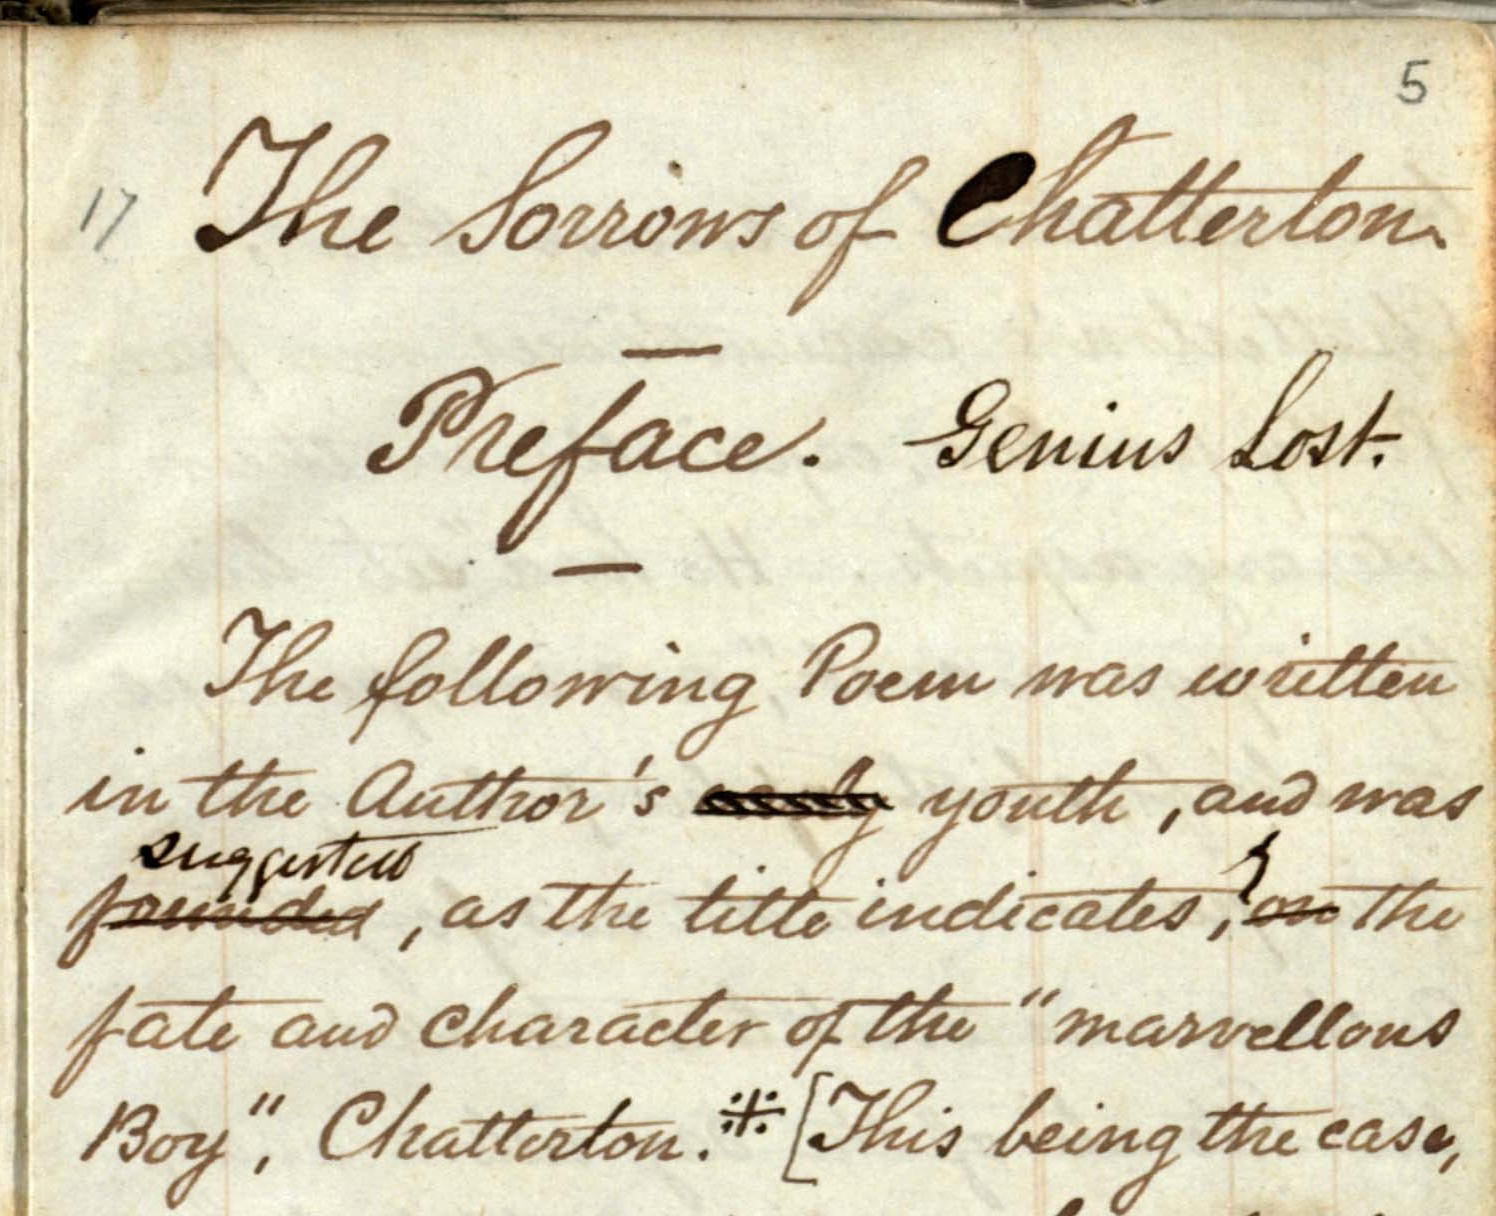 5
17 The Sorrows of Chatterton.
Preface. Genius Lost.
The following Poem was written
in the Author's early youth, and was
suggested
founded, as the title indicates, on the
fate and character of the "marvellous
Boy", Chatterton.* [This being the case,